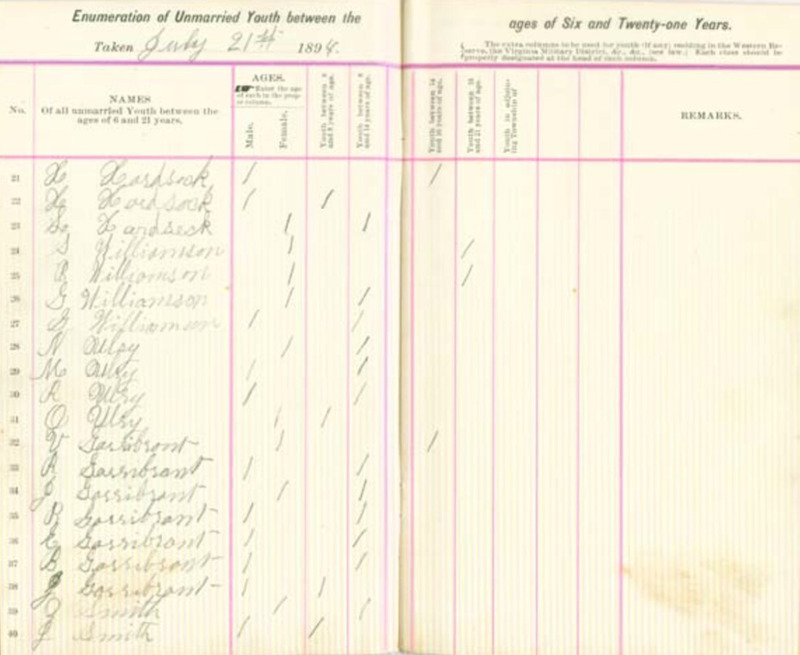 Enumeration of Unmarried Youth between the ages of Six and Twenty-one Years.
Taken July 21st 1894.
The extra columns to be used for youth (if any) residing in the Western Re-
serve, the Virginia Military District, &c., &c., (see law.) Each class should be
properly designated at the head of such column.
No.
NAMES
Of all unmarried Youth between the
ages of 6 and 21 years.
AGES.
Enter the age
of each in the prop-
er column.
Male.
Female.
Youth between 6
and 8 years of age.
Youth between 8
and 14 years of age.
Youth between 14
and 16 years of age.
Youth between 16
and 21 years of age.
Youth in adjoin-
ing Township of
REMARKS.
21 H Hardsock / /
22 H Hordsock / /
23 Hardseck / /
24 S Williamson / /
25 R Williamson / /
26 G Williamson / /
27 Williamson / /
28 N Ulry / /
29 M Ulry / /
30 R Ulry / /
31 O Ulry / /
32 V Garribront / /
33 A Garribrant / /
34 J Gorribrant / /
35 R Gorribrant / /
36 E Gorribrant / /
37 B Gorribrant / /
38 Gorribrant / /
39 Smith / /
40 J Smith / /